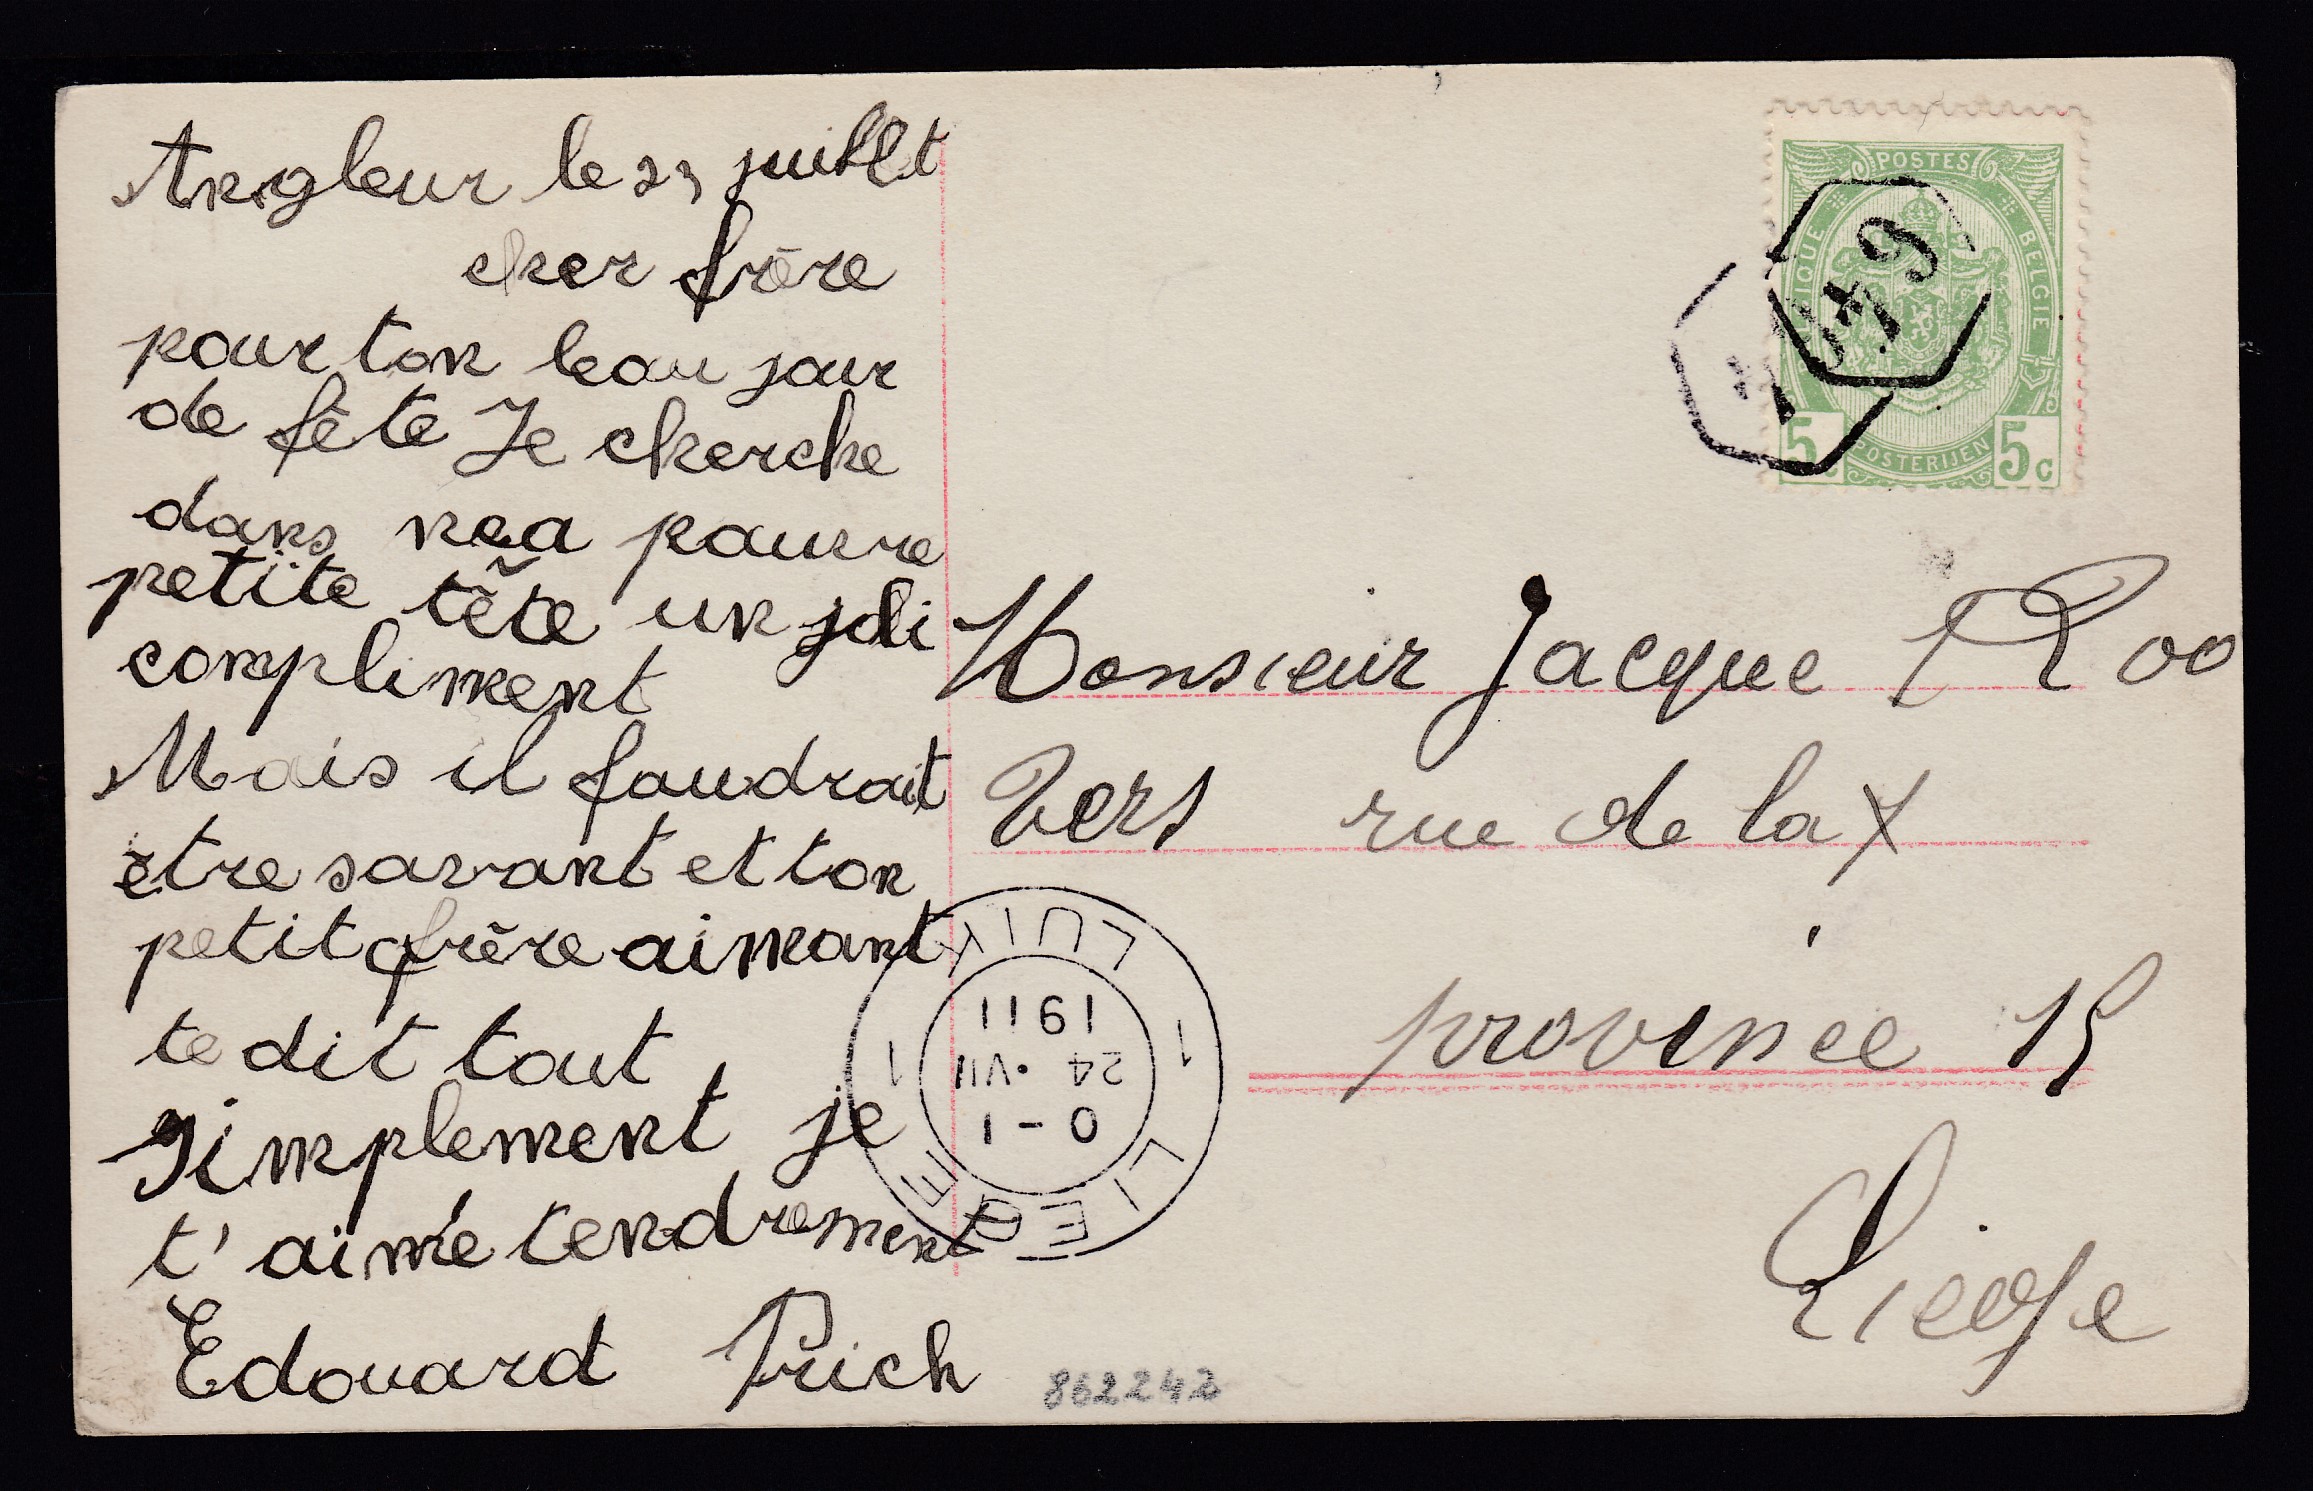 Angleur le 23 juillet
cher frère
pour ton beau jour
de fête Je cherche
dans ma pauvre
petite tête un joli
compliment
Mais il faudrait
etre savant et ton
petit frère aimant
te dit tout
simplement je
t'aime tendrement
Edouard Prich
POSTES
BELGIQUE BELGIE
POSTERIJEN
5c 5c
Monsieur Jacque Roo
Vers rue de la X
province 15
Liège
LUIK
1 1
1911
24 · VII
0 - 1
LIEGE
862242